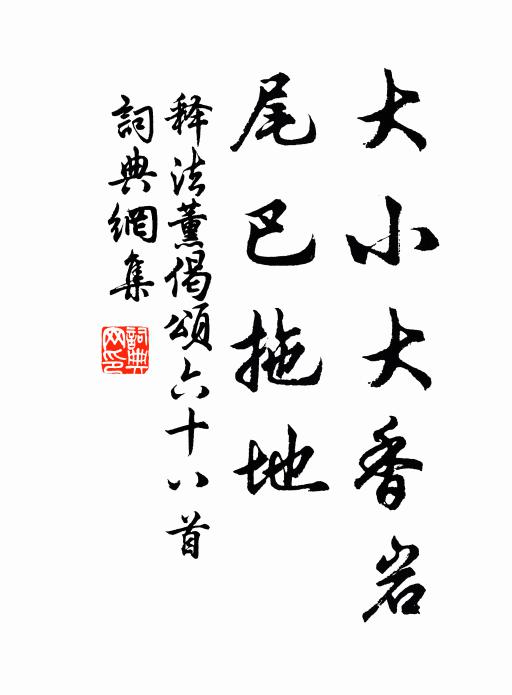 大小大香岩
尾巴拖地
释法薰偈頌六十八首
詞典網集
詞典网印